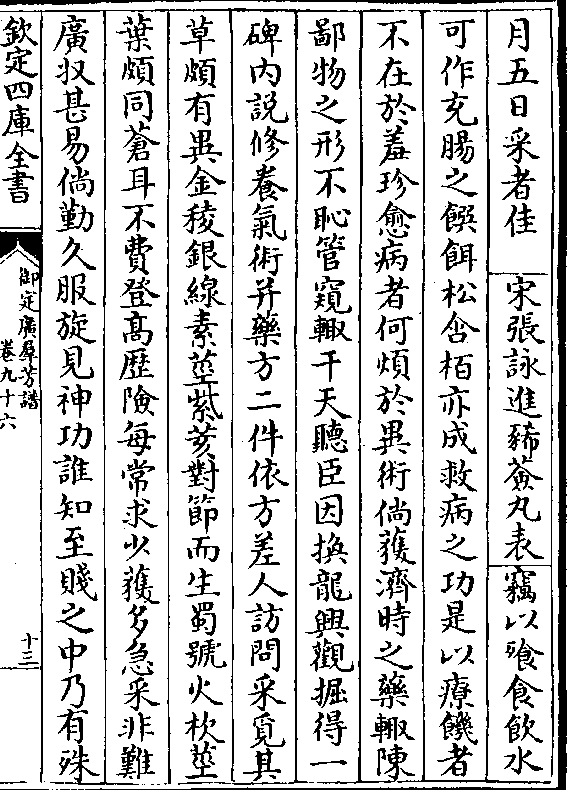 月五日采者佳　宋張詠進豨薟丸表　竊以飡食飲水
可作充腸之饌餌松含栢亦成救病之功是以療饑者
不在於羞珍愈病者何煩於異術倘獲濟時之藥輙陳
鄙物之形不恥管窺輙干天聽臣因換龍興觀掘得一
碑内說修養氣術并藥方二件依方差人訪問采覓其
草頗有異金稜銀線素莖紫荄對節而生蜀號火杴莖
葉頗同蒼耳不費登髙歴險每常求少獲多急采非難
廣收甚易倘勤久服旋見神功誰知至賤之中乃有殊
欽定四庫全書
御定廣羣芳譜
卷九十六
十三